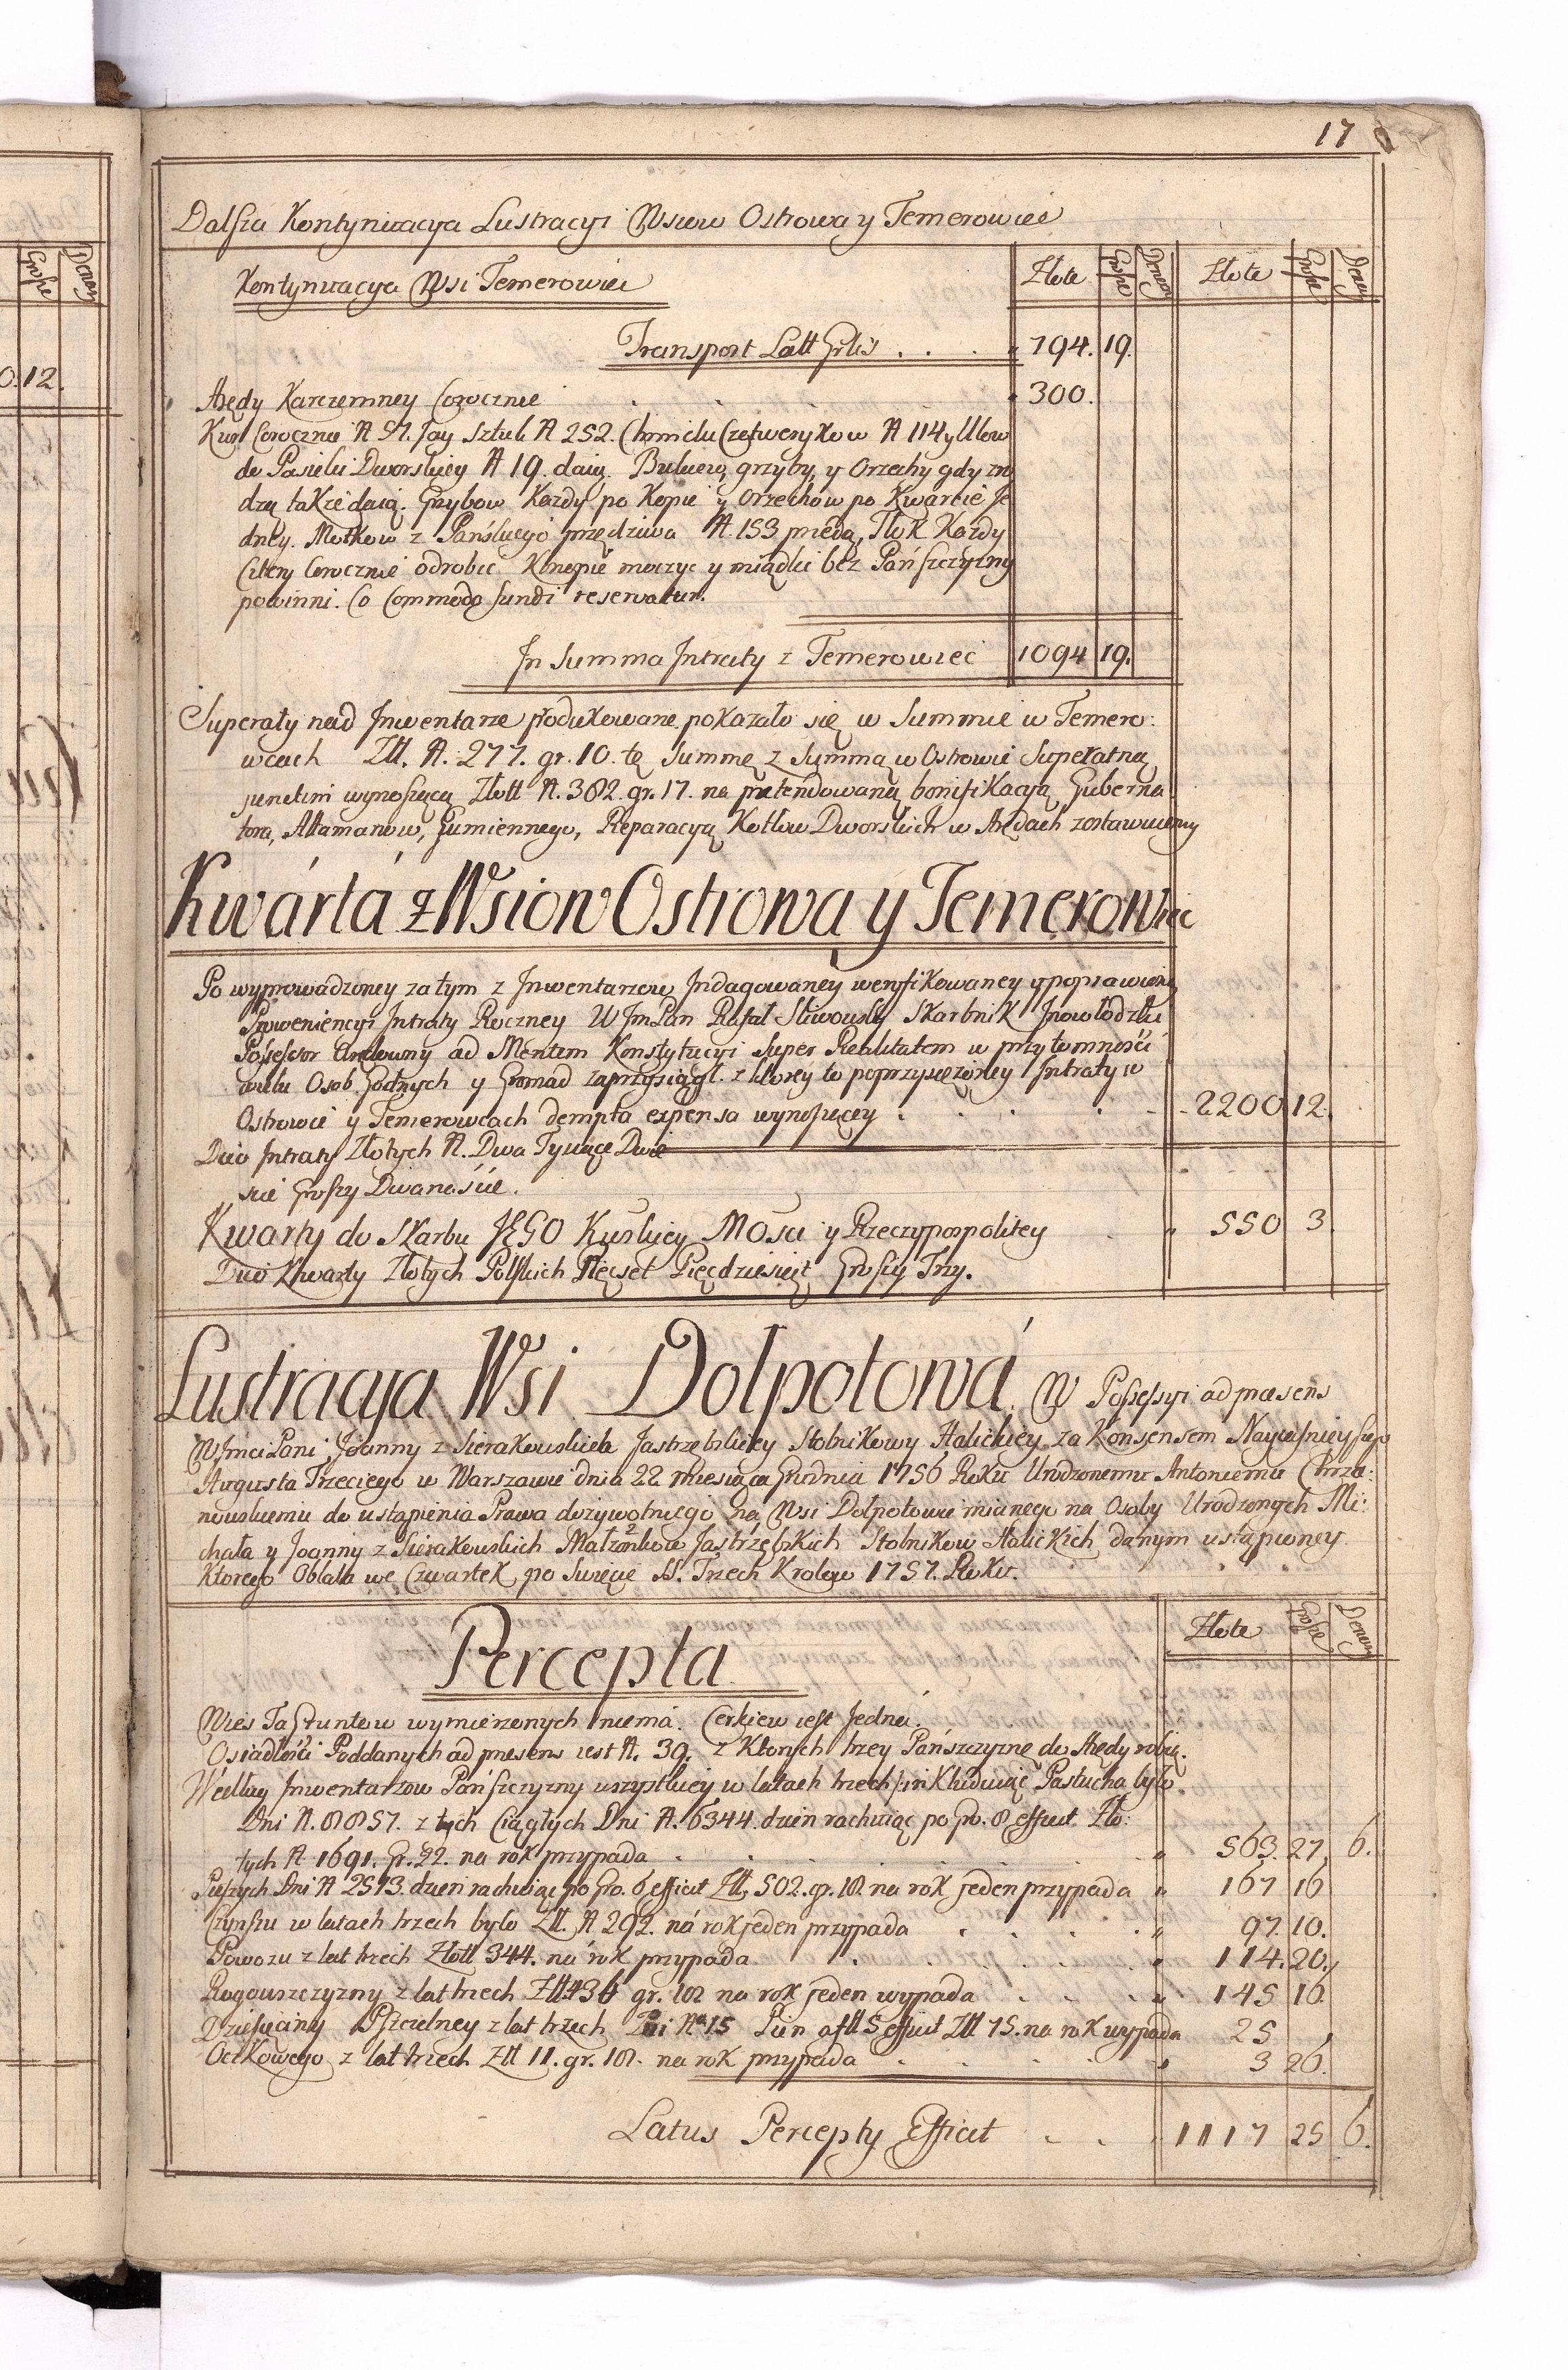 17
Dalsza Kontynuacya Lustracyi Wsiow Ostrowa y Temerowiec
Kontynuacya Wsi Temerowiec
Złote Grosze Denary Złote Grosze Denary
Transport Latt 794. 19.
Arędy Karczemney Corocznie 300.
Kur Corocznie N 51. Jay Sztuk N 252. Chmielu Czetwerykow N 114 y Ulow
do Pasieki Dworskiey N 19. daią. grzyby, y Orzechy gdy zro
dzą także daią. Grzybow Każdy po Kopie y Orzechow po Kwarcie Je
dney. Motkow z Pańskiego przędziwa N. 153 przędą, Tłok Każdy
Cztery Corocznie odrobic Konopie moczyc y miądlić bez Pańszczyzny
powinni. Co Commodo fundi reservatur.
In Summa Intraty z Temerowiec 1094 19.
Superaty nad Inwentarze produkowane pokazało się w Summie w Temero:
wcach Złł. N. 277. gr. 10. tę Summę z Summą w Ostrowie Superatną
junctim wynoszącą Złott N. 382. gr. 17. na pretendowaną bonifikacyą Guberna
tora, Attamanow, Gumiennego, Reparacyą Kotłow Dworskich w Arędach zostawuiemy
Kwarta z Wsiow Ostrowa y Temerowiec
Po wyprowadzoney zatym z Inwentarzow Indagowaney weryfikowaney y poprawioney
Proweniencyi Intraty Roczney WJmPan Rafał Sliwowski Skarbnik Inowłodzki
Possessor Aredowny ad Mentem Konstytucyi Super Realitatem w przytomności
wielu Osob Godnych y Gromad zaprzysiągł. z ktorey to poprzysiężoney Intraty w
Ostrowie y Temerowcach dempta expensa wynoszącey 2200 12.
Duo Intraty Złotych N. Dwa Tysiące Dwie
scie Groszy Dwanaście.
Kwarty do Skarbu JEGO Krolskiey Mości y Rzeczypospolitey 550 3.
Duo Kwarty Złotych Polskich Pięcset Pięcdziesięt Groszy Trzy.
Lustracya Wsi Dołpotowa. W Possessyi ad præsens
WJmci Pani Joanny z Sierakowskich Jastrzębskiey Stolnikowy Halickiey za Konsensem Nayiaśnieyszego
Augusta Trzeciego w Warszawie dnia 22 miesiąca Grudnia 1756 Roku Urodzonemu Antoniemu Chrza:
nowskiemu do ustąpienia Prawa dożywotniego na Wsi Dołpotowie mianego na Osoby Urodzonych Mi:
chała y Joanny z Sierakowskich Małżonkow Jastrzębskich Stolnikow Halickich danym ustąpioney
Ktorego Oblata we Czwartek po Swięcie SS. Trzech Krolow 1757. Roku.
Percepta
Złote Grosze Denary
Wieś Ta Gruntow wymierzonych niema. Cerkiew iest Jedna.
Osiadłości Poddanych ad præsens iest N. 39. z Ktorych trzey Pańszczyznę do Arędy robią.
Według Inwentarzow Pańszczyzny wszystkiey w latach trzech inkluduiąc Pastucha było
Dni N. 8857. z tych Ciągłych Dni N. 6344. dzien rachuiąc po Gro. 8 efficit Zło:
tych N 1691. Gr. 22. na rok przypada 563. 27. 6.
Pieszych Dni N 2513. dzień rachuiąc po Gro. 6 efficit Złł. 502. gr. 18. na rok jeden przypada 167 16
Czynszu w latach trzech było Złł. N 292. na rok jeden przypada 97. 10.
Powozu z lat trzech Złott 344. na rok przypada 114. 20.
Rogowszczyzny z lat trzech Złł. 436 gr. 18 na rok jeden wypada 145 16.
Dziesięciny Pszczelney z lat trzech Pni No 15 Pien a fłł 5 efficit Złł 75. na rok wypada 25
Oczkowego z lat trzech Złł 11. gr. 18. na rok przypada 3 26.
Latus Percepty Efficit 1117 25 6.
0. 12.
Grosze Denary